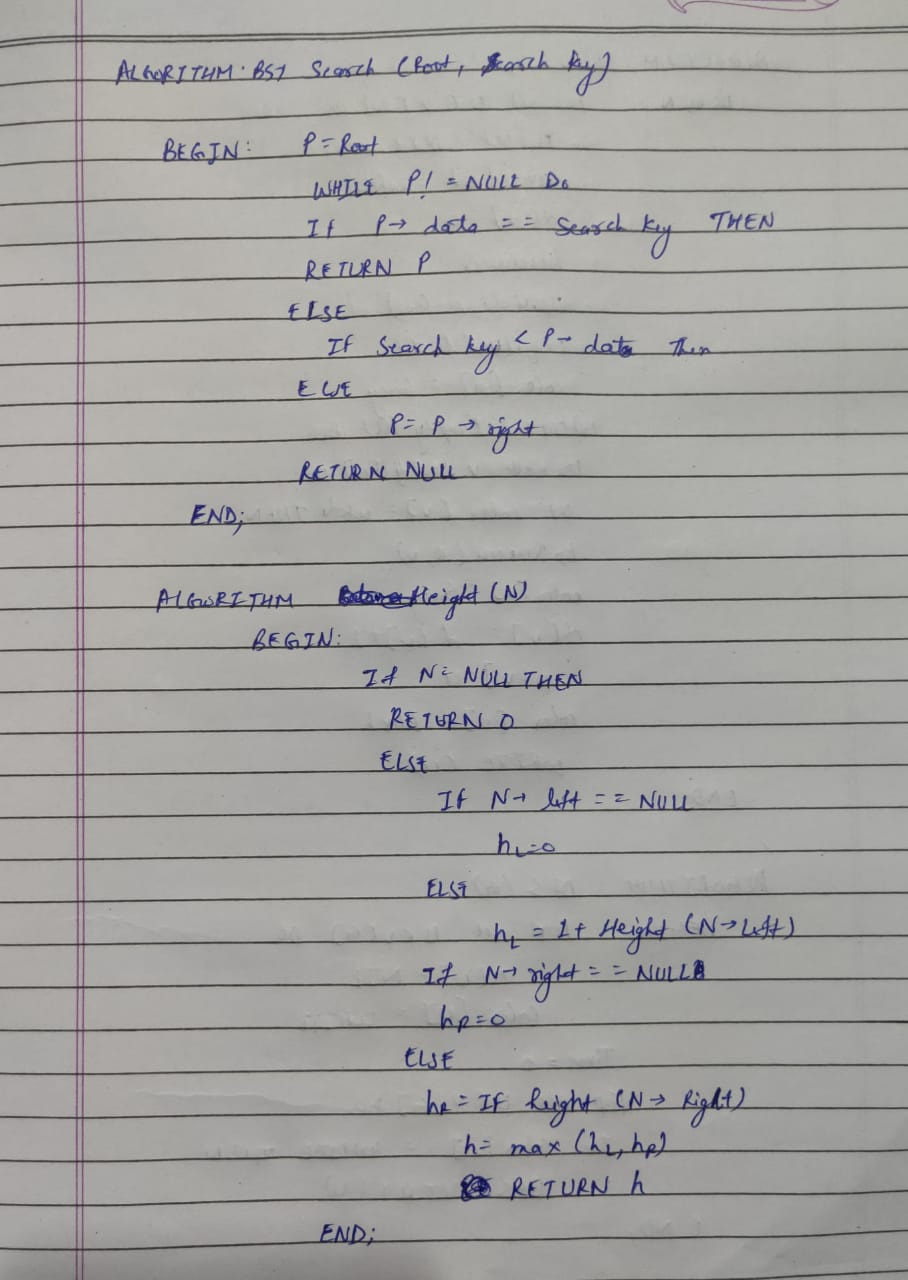 ALGORITHM: BST Search (Root, Search key)
BEGIN: P = Root
WHILE P! = NULL Do
If P → data == Search key THEN
RETURN P
ELSE
If Search key < P → data Then
ELSE
P = P → right
RETURN NULL
END;
ALGORITHM Height (N)
BEGIN:
If N = NULL THEN
RETURN 0
ELSE
If N → left == NULL
hL=0
ELSE
hL = 1+ Height (N → Left)
If N → right == NULL
hR=0
ELSE
hR = If height (N → Right)
h= max (hL, hR)
RETURN h
END;